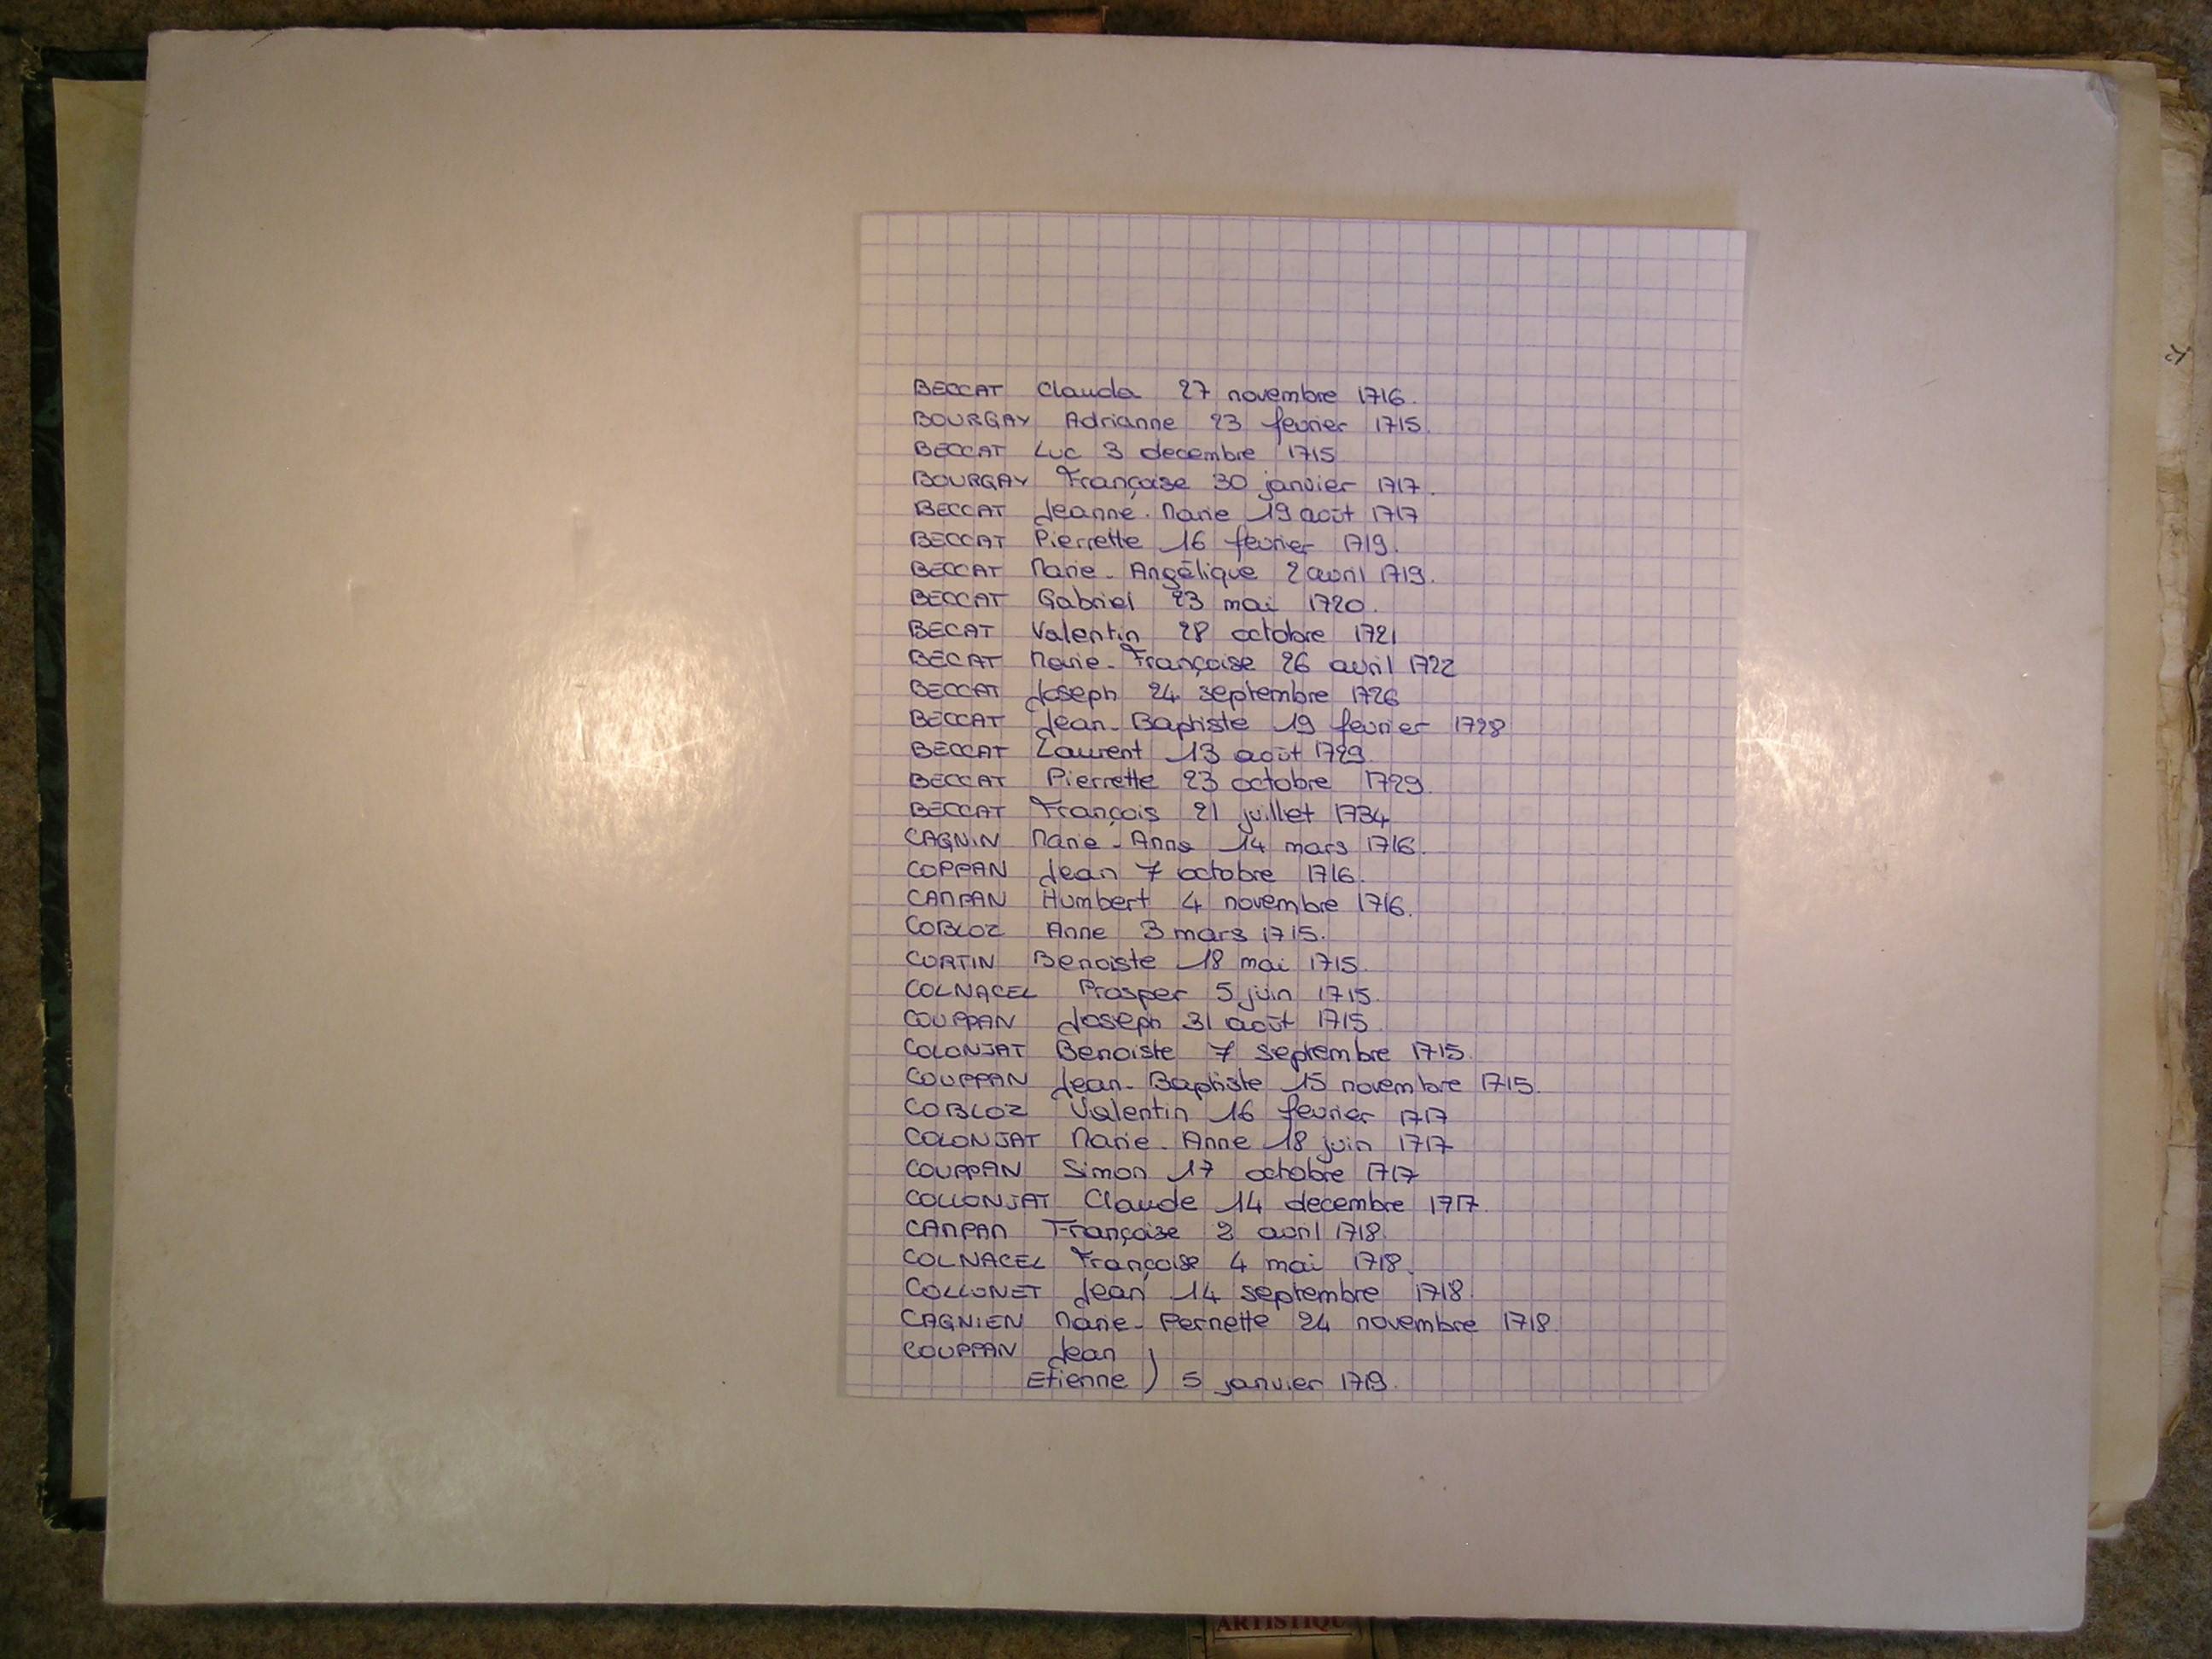 BECCAT Clauda 27 novembre 1716.
BOURGAY Adrianne 23 fevrier 1715.
BECCAT Luc 3 decembre 1715
BOURGAY Françoise 30 janvier 1717.
BECCAT Jeanne-Marie 19 août 1717
BECCAT Pierrette 16 fevrier 1719.
BECCAT Marie-Angélique 2 avril 1719.
BECCAT Gabriel 23 mai 1720.
BECAT Valentin 28 octobre 1721
BECAT Marie-Françoise 26 avril 1722
BECCAT Joseph 24 septembre 1726
BECCAT Jean-Baptiste 19 fevrier 1728
BECCAT Laurent 13 août 1729.
BECCAT Pierrette 23 octobre 1729.
BECCAT François 21 juillet 1734
CAGNIN Marie-Anne 14 mars 1716.
COPPAN Jean 7 octobre 1716.
CAMPAN Humbert 4 novembre 1716.
COBLOZ Anne 3 mars 1715.
CURTIN Benoiste 18 mai 1715.
COLNACEL Prosper 5 juin 1715.
COUPPAN Joseph 31 août 1715.
COLONJAT Benoiste 7 septembre 1715.
COUPPAN Jean-Baptiste 15 novembre 1715.
COBLOZ Valentin 16 fevrier 1717
COLONJAT Marie-Anne 18 juin 1717
COUPPAN Simon 17 octobre 1717
COLLONJAT Claude 14 decembre 1717.
CAMPAN Françoise 2 avril 1718.
COLNACEL Françoise 4 mai 1718.
COLLONET Jean 14 septembre 1718.
CAGNIEN Marie-Pernette 24 novembre 1718.
COUPPAN Jean
Etienne ) 5 janvier 1719.
ARTISTIQU